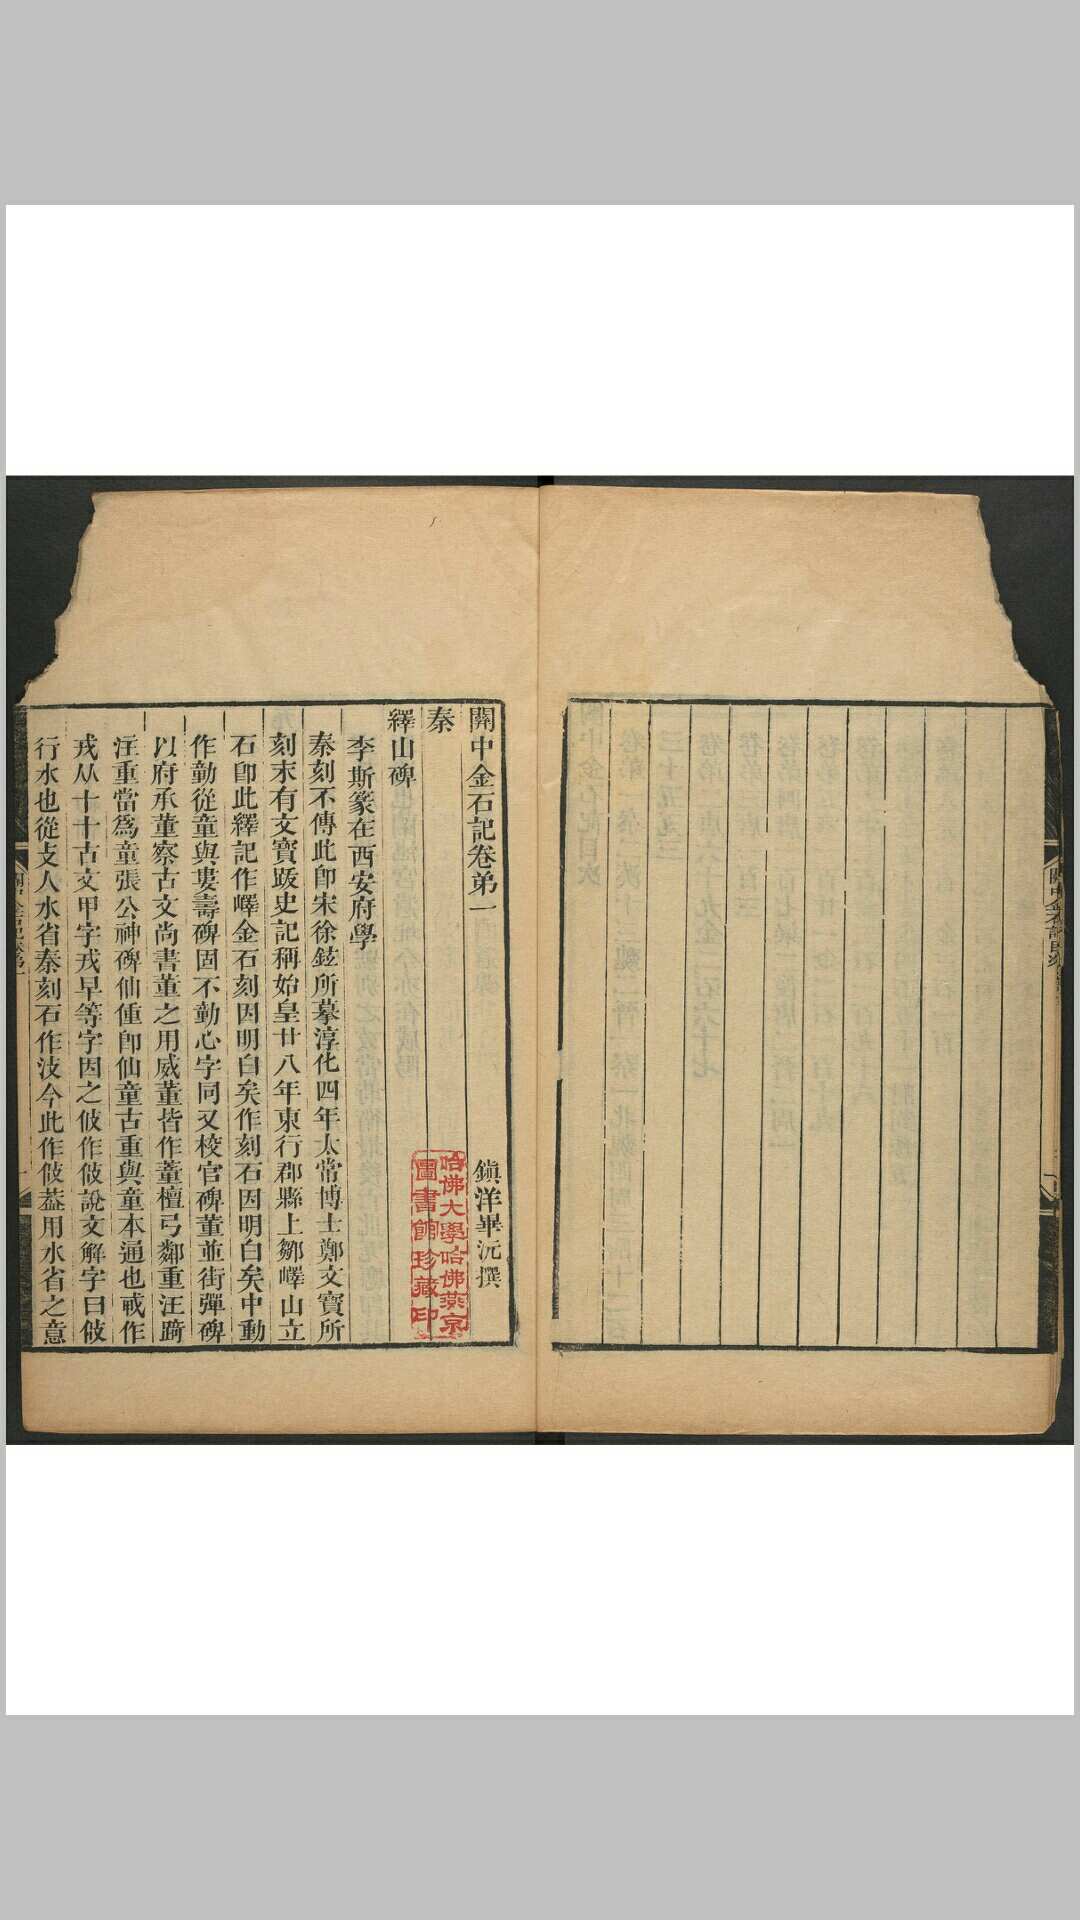 關中金石記卷弟一
鎭洋畢沅撰
哈佛大學哈佛燕京
圖書館珍藏印
秦
繹山碑
李斯篆在西安府學
秦刻不傳此卽宋徐鉉所摹淳化四年太常博士鄭文寶所
刻末有文寶跋史記稱始皇廿八年東行郡縣上鄒嶧山立
石卽此繹記作嶧金石刻因明白矣作刻石因明白矣中動
作勭從童與婁壽碑固不勭心字同又校官碑董並街彈碑
以府承董察古文尚書董之用威董皆作董檀弓鄰重汪踦
注重當爲童張公神碑仙偅卽仙童古重與童本通也戒作
戎从十十古文甲字戎早等字因之攸作攸說文解字曰攸
行水也從攴人水省秦刻石作汥今此作攸葢用水省之意
關中金石記目次